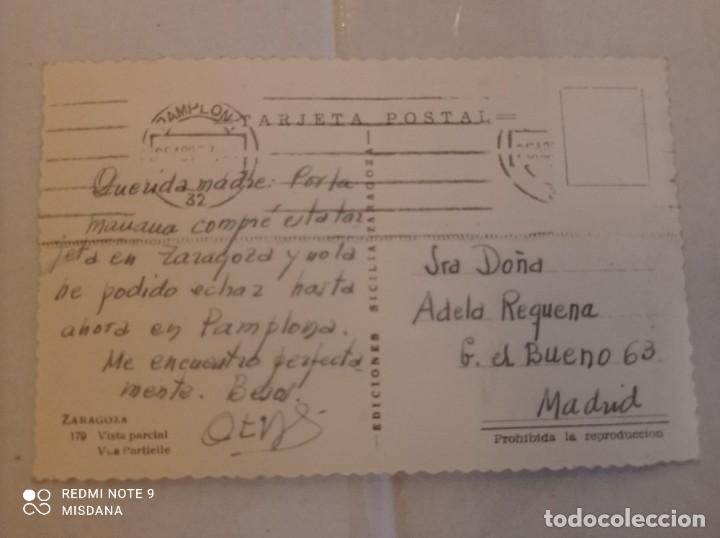 PAMPLON
TARJETA POSTAL
32
Querida madre: Por la
mañana compré esta tar
jeta en Zaragoza y no la
he podido echar hasta
ahora en Pamplona.
Me encuentro perfecta
mente. Besos.
ZARAGOZA
179 Vista parcial
Vue Partielle
EDICIONES SICILIA ZARAGOZA
Sra Doña
Adela Requena
G. el Bueno 63
Madrid
Prohibida la reproduccion
REDMI NOTE 9
MISDANA
todocoleccion